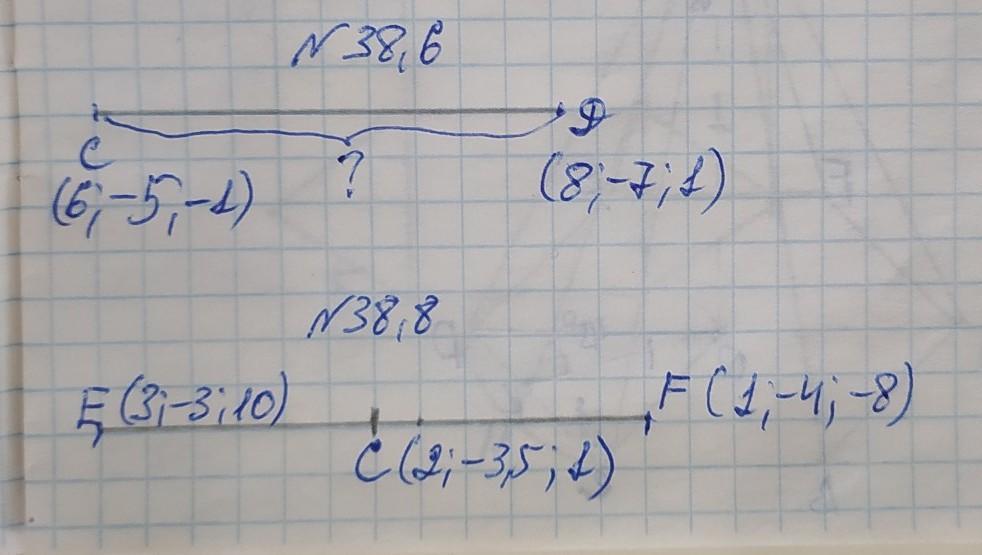 N38,6
C D
(6;-5;-1) ? (8;-7;1)
N38,8
E(3;-3;10) F(1;-4;-8)
C(2;-3,5;1)